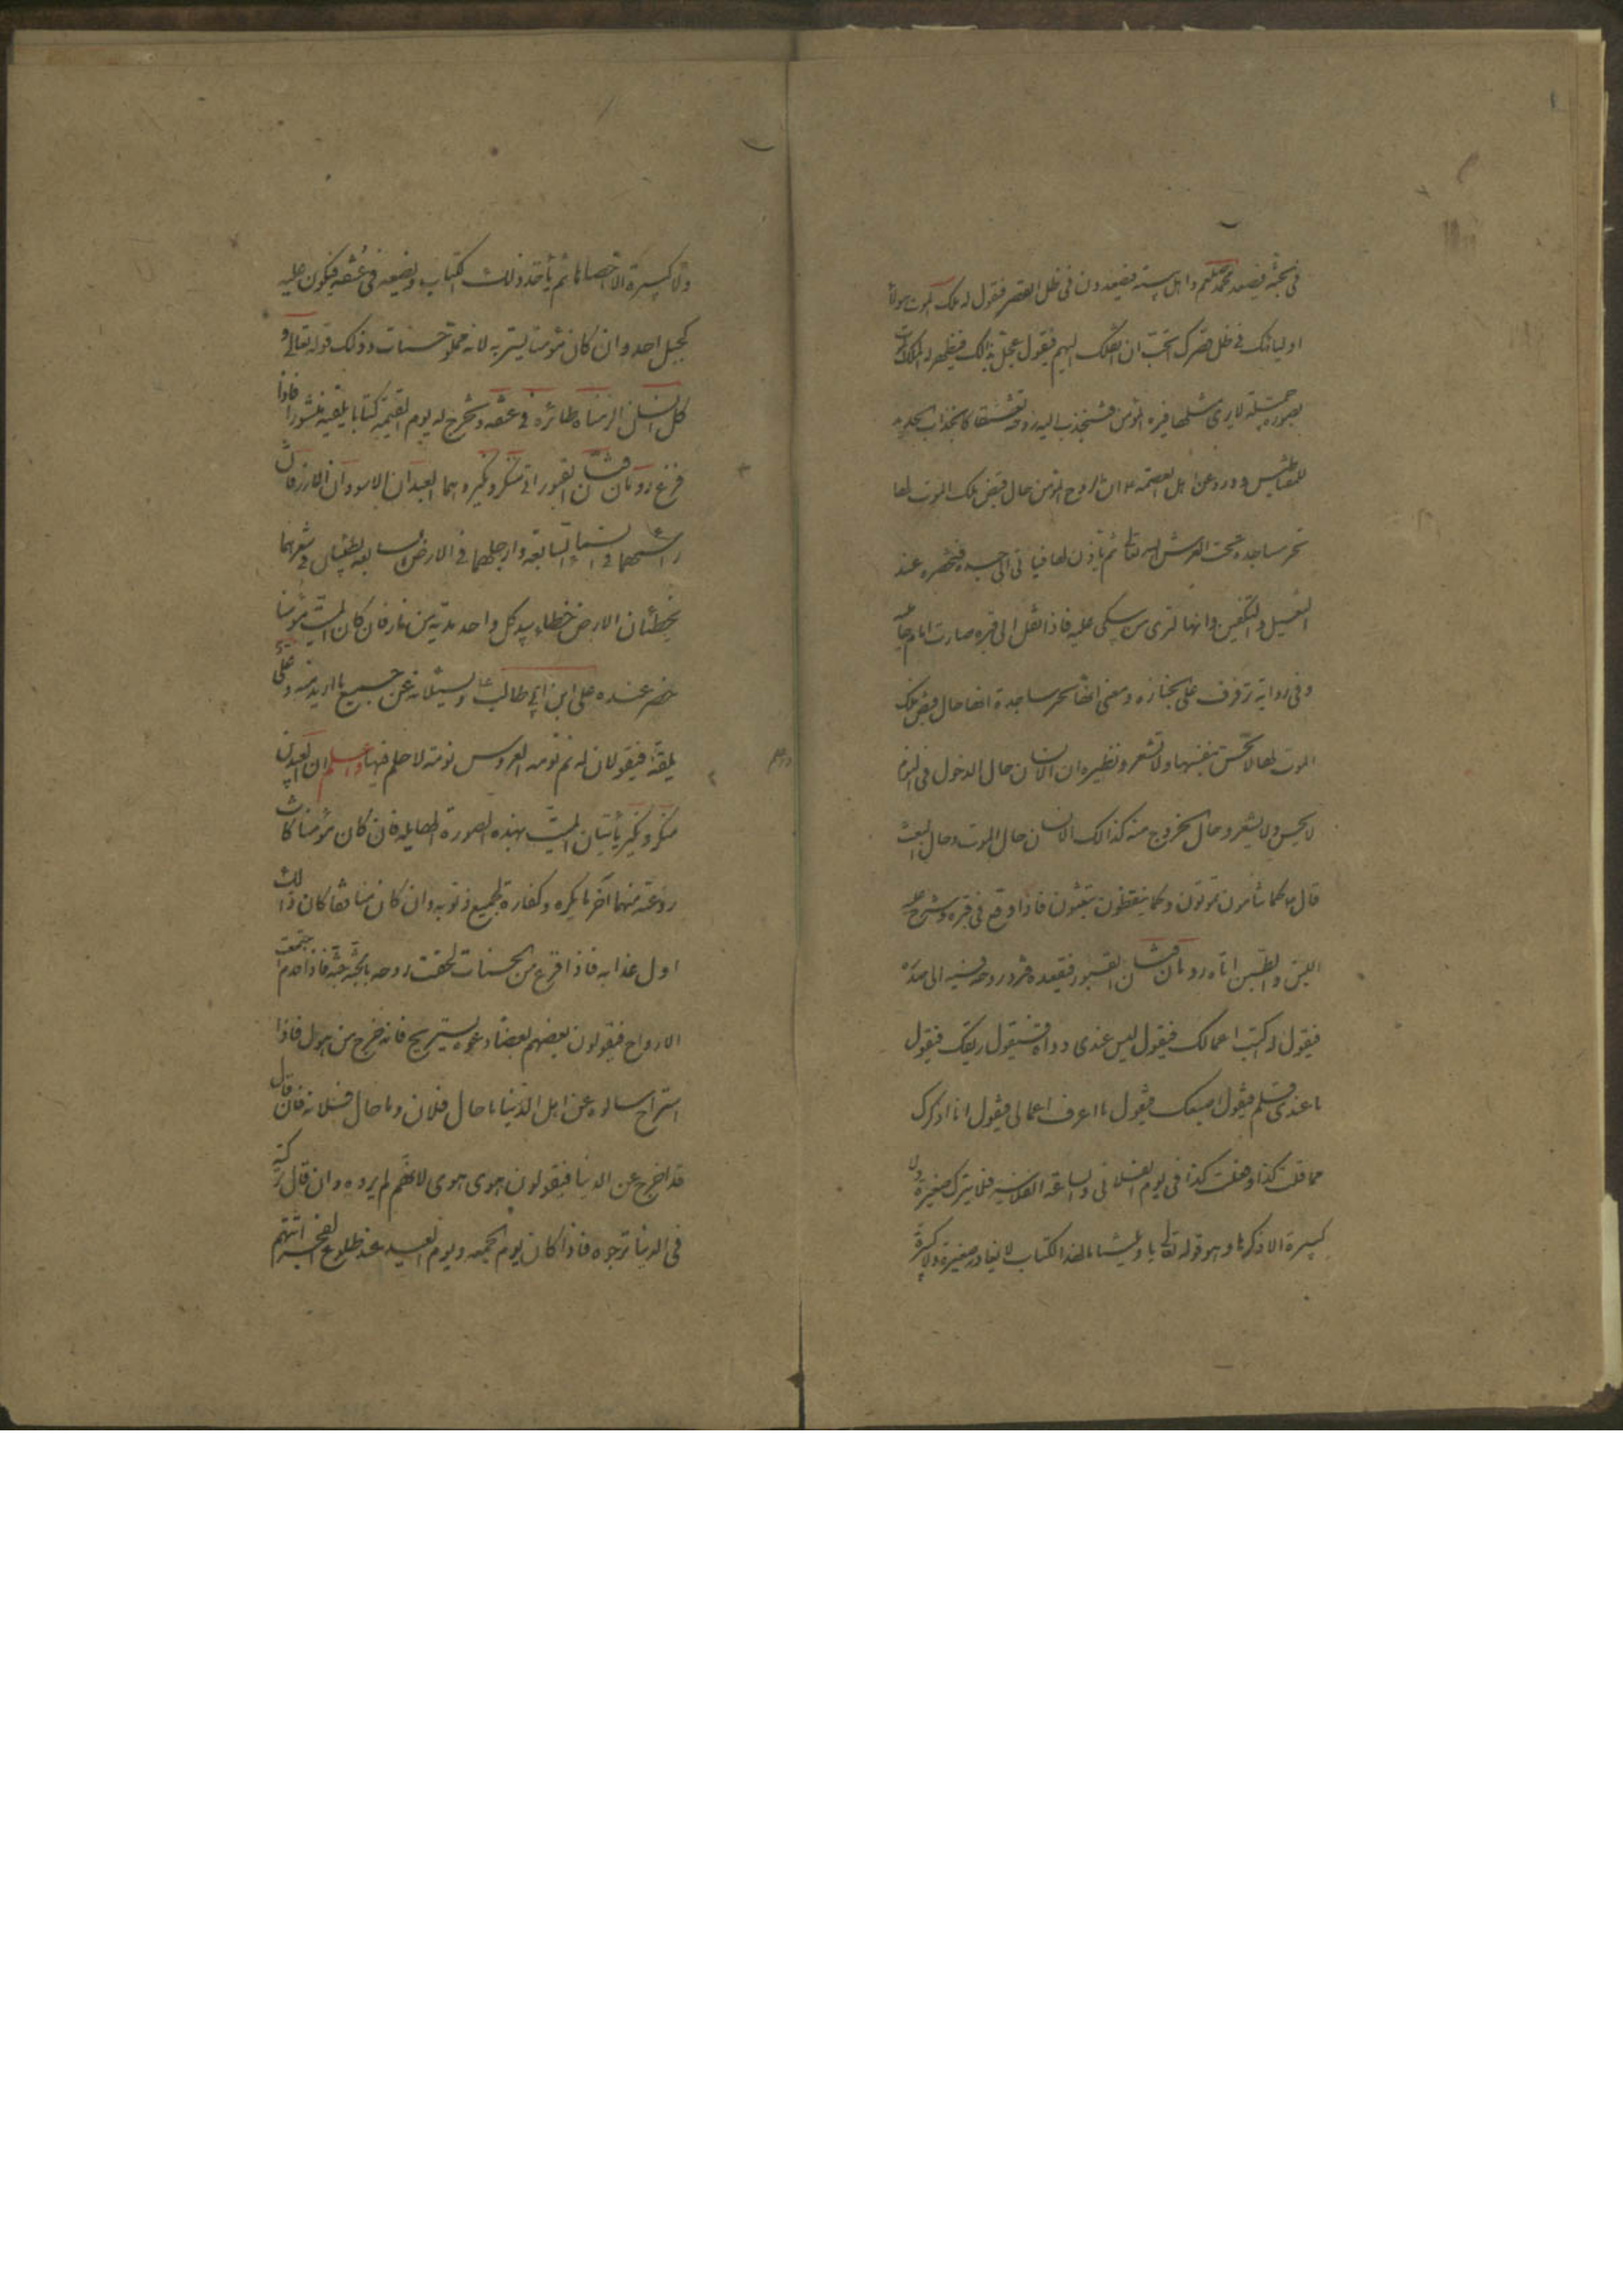 في الجنة فيصعد محمد صلعم واهل بيته فيضعدون في ظل القصر فيقول له ملك الموت هولاء
اوليائك في ظل قصرك اتحب ان انقلك اليهم فيقول عجل بذالك فيظهر له ملك الموت
بصورة جميلة لا يرى مثلها فيره المؤمن فتنجذب اليه روحه تعشقا كانجذاب الحديد
للمغناطيس وورد عن اهل العصمة ع ان الروح المؤمن حال قبض ملك الموت لها
تخر ساجدة تحت العرش لله تعالى ثم ياذن لها فياتى الى جسده فتحضره عند
التغسيل والتكفين وانها لترى من يبكى عليه فاذا نقل الى قبره صارت امام جنازته
وفى رواية ترفرف على الجنازه ومعنى انها تخر ساجدة انها حال قبض ملك
الموت لها لا تحس بنفسها ولا تشعر ونظيره ان الانسان حال الدخول فى النوم
لا يحس ولا يشعر وحال الخروج منه كذالك الانسان حال الموت وحال البعث
قال ص كما تنامون تموتون وكما تيقظون تبعثون فاذا وقع فى قبره وشرج عليه
اللبن والطين اتاه رومان فتان القبور فيقعده فترد روحه فيه الى صدره
فيقول له اكتب اعمالك فيقول ليس عندى دواة فيقول ريقك فيقول
ما عندى قلم فيقول اصبعك فيقول ما اعرف اعمالى فيقول انا اذكرك
مما فعلت كذا وفعلت كذا فى يوم الفلانى والساعة الفلانية فلا يترك صغيرة ولا
كبيرة الا ذكرها وهو قوله تعالى يا ويلتنا ما لهذا الكتاب لا يغادر صغيرة ولا كبيرة
ولا كبيرة الا احصاها ثم يأخذ ذلك الكتاب ويضعه فى عنقه فيكون عليه
كجبل احد وان كان مؤمنا يستر به لانه مملو حسنات وذلك قوله تعالى و
كل انسان الزمناه طائره في عنقه ونخرج له يوم القيمة كتابا يلقيه منشورا فاذا
فرغ رومان فتان القبور اتى منكر ونكير وهما العبدان الاسودان الازرقان
رأسهما في السماء السابعة وارجلهما في الارض السابعة يطئان في شعرهما
يخطئان الارض خطا بيد كل واحد مدية من نار فان كان الميت مؤمنا
حضر عنده على ابن ابي طالب ع ويسئلانه عن جميع ما اريد منه وعلى ع
يلقنه فيقولان له نم نومة العروس نومة لا حلم فيها واعلم ان العبدين
منكر ونكير يأتيان الميت بهذه الصورة الهايلة فان كان مؤمنا كانت
روعته منهما آخر ما يكره وكفارة لجميع ذنوبه وان كان منافقا كان ذالك
اول عذابه فاذا فرغ من الحسنات لحقت روحه بالجنة جنة فاذا قدم اجتمعت
الارواح فيقولون بعضهم لبعضا دعوه يستريح فانه خرج من هول فاذا
استراح سالوه عن اهل الدنيا ما حال فلان وما حال فلانه فان قال
قد اخرج عن الدنيا فيقولون هوى هوى لانهم لم يروه وان قال تركته
فى الدنيا ترجوه فاذا كان يوم الجمعه ويوم العيد عند طلوع الفجر اتتهم